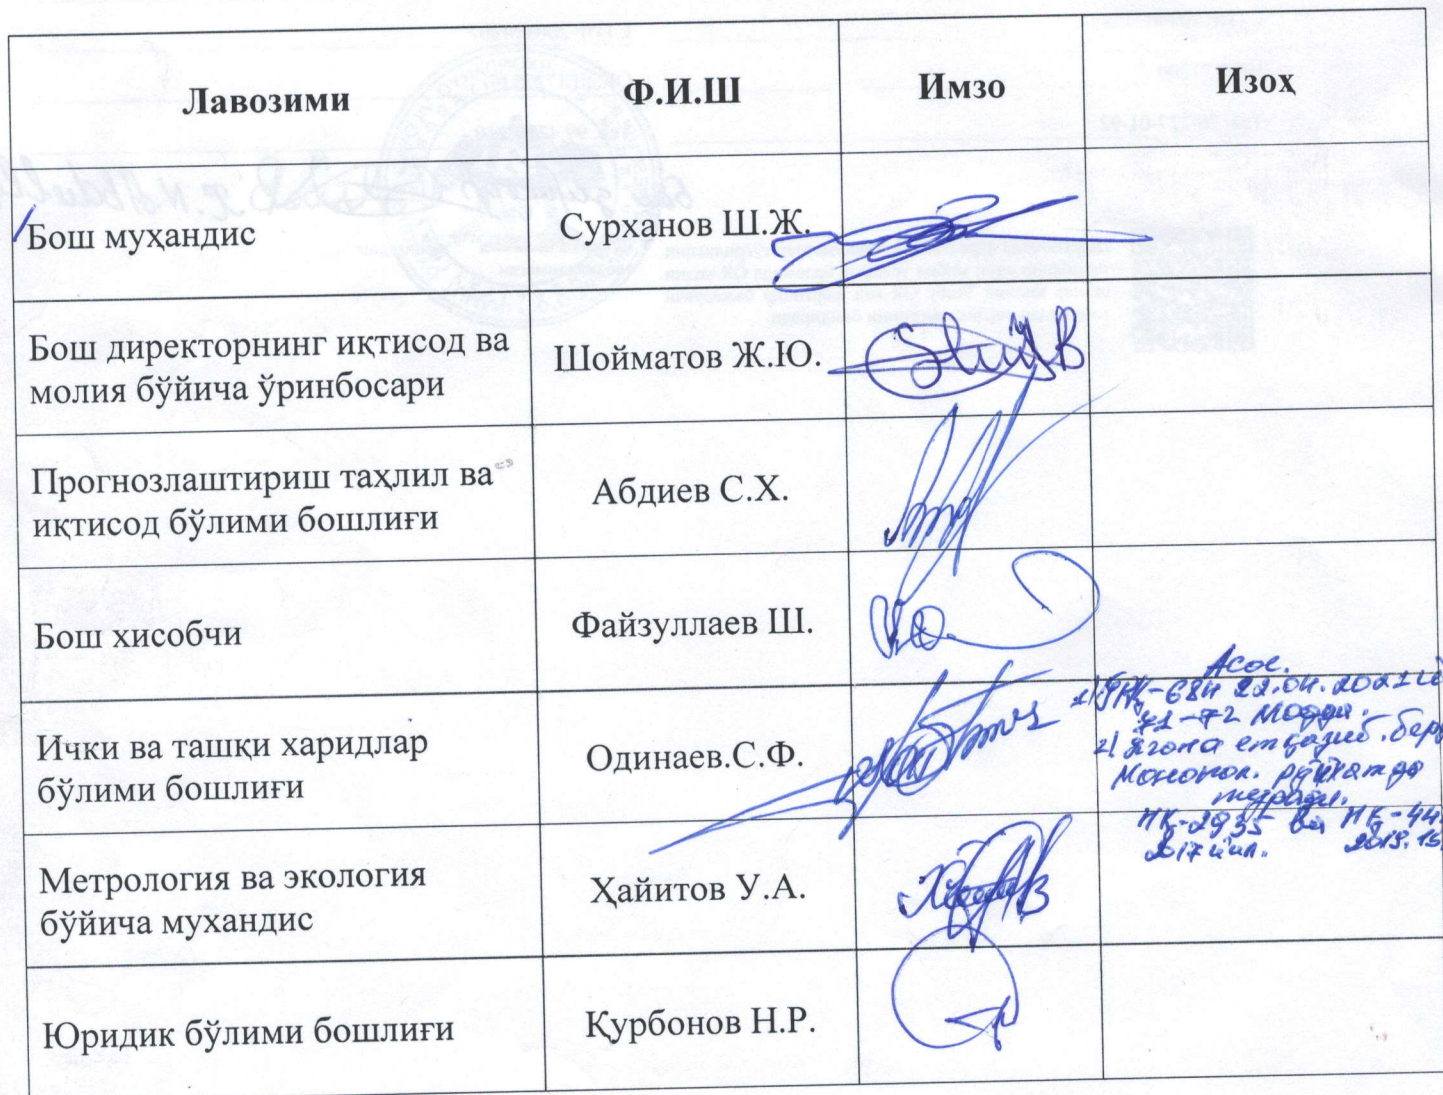 Лавозими
Ф.И.Ш
Имзо
Изоҳ
Бош муҳандис
Сурханов Ш.Ж.
Бош директорнинг иқтисод ва
молия бўйича ўринбосари
Шойматов Ж.Ю.
Прогнозлаштириш таҳлил ва
иқтисод бўлими бошлиғи
Абдиев С.Х.
Бош хисобчи
Файзуллаев Ш.
Ички ва ташқи харидлар
бўлими бошлиғи
Одинаев.С.Ф.
Асос.
22.04.2021
71-72 модда.
2) Ягона етказиб.
Монопол. рўйхатда
туради.
ПҚ-2935 ва ПҚ-44
2017 йил. 2019.
Метрология ва экология
бўйича мухандис
Ҳайитов У.А.
Юридик бўлими бошлиғи
Қурбонов Н.Р.